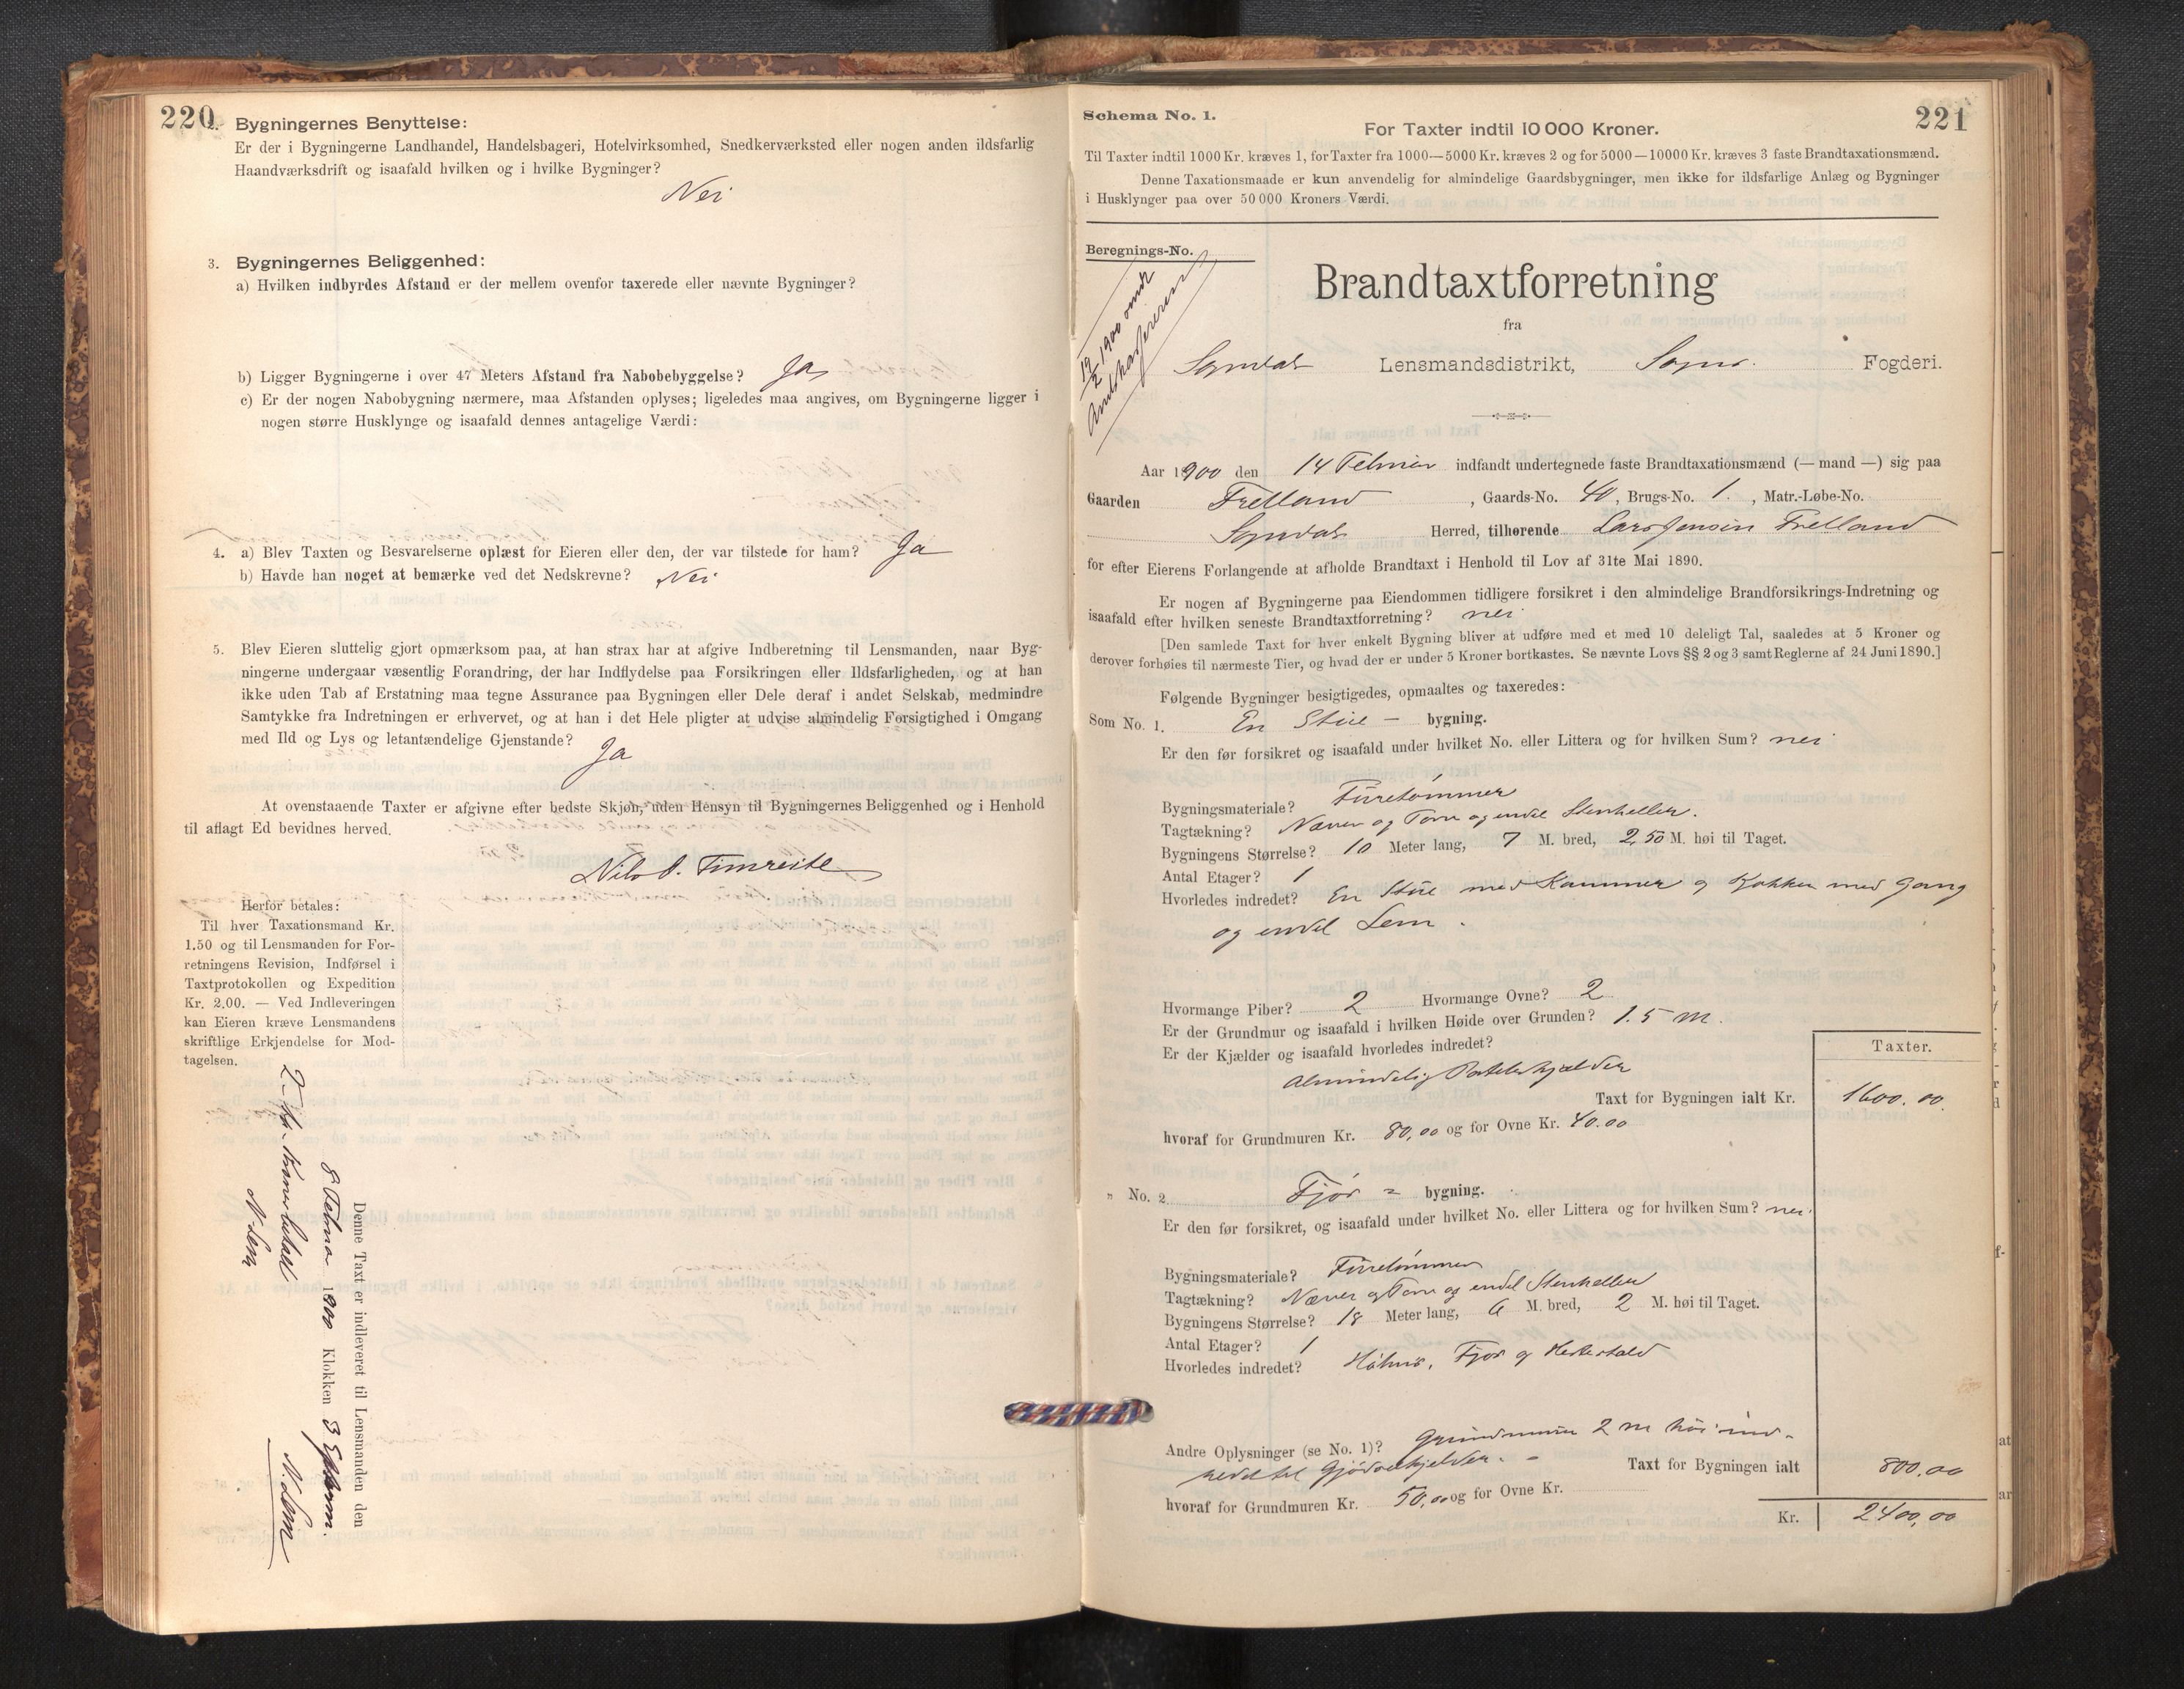 220
2. Bygningernes Benyttelse:
Er der i Bygningerne Landhandel, Handelsbageri, Hotelvirksomhed, Snedkerværksted eller nogen anden ildsfarlig
Haandværksdrift og isaafald hvilken og i hvilke Bygninger?
Nei
3. Bygningernes Beliggenhed:
a) Hvilken indbyrdes Afstand er der mellem ovenfor taxerede eller nævnte Bygninger?
b) Ligger Bygningerne i over 47 Meters Afstand fra Nabobebyggelse? Ja
c) Er der nogen Nabobygning nærmere, maa Afstanden oplyses; ligeledes maa angives, om Bygningerne ligger i
nogen større Husklynge og isaafald dennes antagelige Værdi:
4. a) Blev Taxten og Besvarelserne oplæst for Eieren eller den, der var tilstede for ham? Ja
b) Havde han noget at bemærke ved det Nedskrevne? Nei
5. Blev Eieren sluttelig gjort opmærksom paa, at han strax har at afgive Indberetning til Lensmanden, naar Byg-
ningerne undergaar væsentlig Forandring, der har Indflydelse paa Forsikringen eller Ildsfarligheden, og at han
ikke uden Tab af Erstatning maa tegne Assurance paa Bygningen eller Dele deraf i andet Selskab, medmindre
Samtykke fra Indretningen er erhvervet, og at han i det Hele pligter at udvise almindelig Forsigtighed i Omgang
med Ild og Lys og letantændelige Gjenstande?
Ja
At ovenstaaende Taxter er afgivne efter bedste Skjøn, uden Hensyn til Bygningernes Beliggenhed og i Henhold
til aflagt Ed bevidnes herved.
Nils O. Fimreite
Herfor betales:
Til hver Taxationsmand Kr.
1.50 og til Lensmanden for For-
retningens Revision, Indførsel i
Taxtprotokollen og Expedition
Kr. 2.00. — Ved Indleveringen
kan Eieren kræve Lensmandens
skriftlige Erkjendelse for Mod-
tagelsen.
Denne Taxt er indleveret til Lensmanden den
8 Februar 1900 Klokken 3 Efterm.
N. Lem
2 - to - Kroner betalt
N Lem
Schema No. 1.
221
For Taxter indtil 10 000 Kroner.
Til Taxter indtil 1000 Kr. kræves 1, for Taxter fra 1000—5000 Kr. kræves 2 og for 5000—10000 Kr. kræves 3 faste Brandtaxationsmænd.
Denne Taxationsmaade er kun anvendelig for almindelige Gaardsbygninger, men ikke for ildsfarlige Anlæg og Bygninger
i Husklynger paa over 50 000 Kroners Værdi.
Beregnings-No.
19/2 1900
Brandtaxtforretning
fra
Sogndal Lensmandsdistrikt, Sogns Fogderi.
Aar 1900 den 14 Februar indfandt undertegnede faste Brandtaxationsmænd (— mand —) sig paa
Gaarden Fretland, Gaards-No. 40, Brugs-No. 1., Matr.-Løbe-No.
Sogndal Herred, tilhørende Lars Jensen Fretland
for efter Eierens Forlangende at afholde Brandtaxt i Henhold til Lov af 31te Mai 1890.
Er nogen af Bygningerne paa Eiendommen tidligere forsikret i den almindelige Brandforsikrings-Indretning og
isaafald efter hvilken seneste Brandtaxtforretning? nei
[Den samlede Taxt for hver enkelt Bygning bliver at udføre med et med 10 deleligt Tal, saaledes at 5 Kroner og
derover forhøies til nærmeste Tier, og hvad der er under 5 Kroner bortkastes. Se nævnte Lovs §§ 2 og 3 samt Reglerne af 24 Juni 1890.]
Følgende Bygninger besigtigedes, opmaaltes og taxeredes:
Som No. 1. En Stue - bygning.
Er den før forsikret og isaafald under hvilket No. eller Littera og for hvilken Sum? nei
Bygningsmateriale? Furetømmer
Tagtækning? Næver og Torv og endel Stenheller.
Bygningens Størrelse? 10 Meter lang, 7 M. bred, 2,50 M. høi til Taget.
Antal Etager? 1
Hvorledes indredet? En Stue med Kammer og Kjøkken med Gang
og endel Lem.
Hvormange Piber? 2 Hvormange Ovne? 2
Er der Grundmur og isaafald i hvilken Høide over Grunden? 1.5 M.
Er der Kjælder og isaafald hvorledes indredet?
Almindelig Potetkjælder
Taxter.
Taxt for Bygningen ialt Kr. 1600.00.
hvoraf for Grundmuren Kr. 80,00 og for Ovne Kr. 40.00
„ No. 2 Fjøs = bygning.
Er den før forsikret, og isaafald under hvilket No. eller Littera og for hvilken Sum? nei
Bygningsmateriale? Furetømmer
Tagtækning? Næver og Torv og endel Stenheller
Bygningens Størrelse? 18 Meter lang, 6 M. bred, 2 M. høi til Taget.
Antal Etager? 1
Hvorledes indredet? Høhus, Fjøs og Hestestald
Andre Oplysninger (se No. 1)? Grundmuren 2 m høi ind-
redet til Gjødselkjelder. -
Taxt for Bygningen ialt 800,00
hvoraf for Grundmuren Kr. 50,00 og for Ovne Kr.
Kr. 2400,00